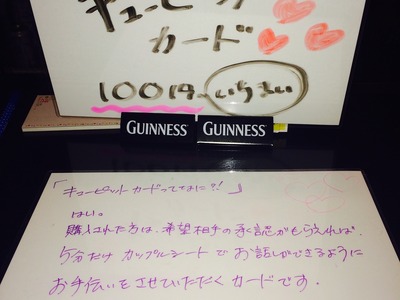 キューピット
カード
100円 いちまい
GUINNESS GUINNESS
「キューピットカードってなに?!」
はい。
購入された方は、希望相手の承認がもらえれば、
5分だけ カップルシートで お話しができるように
お手伝いをさせていただくカードです。